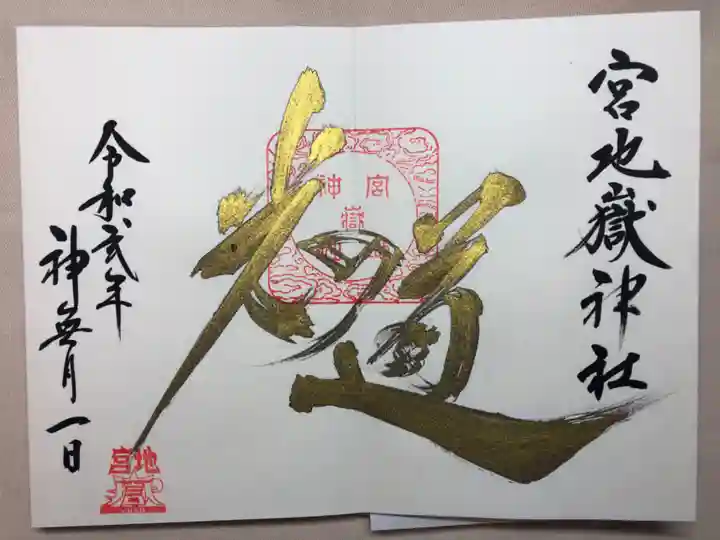 宮地嶽神社
光の道
令和弐年
神無月一日
宮
神
嶽
宮地